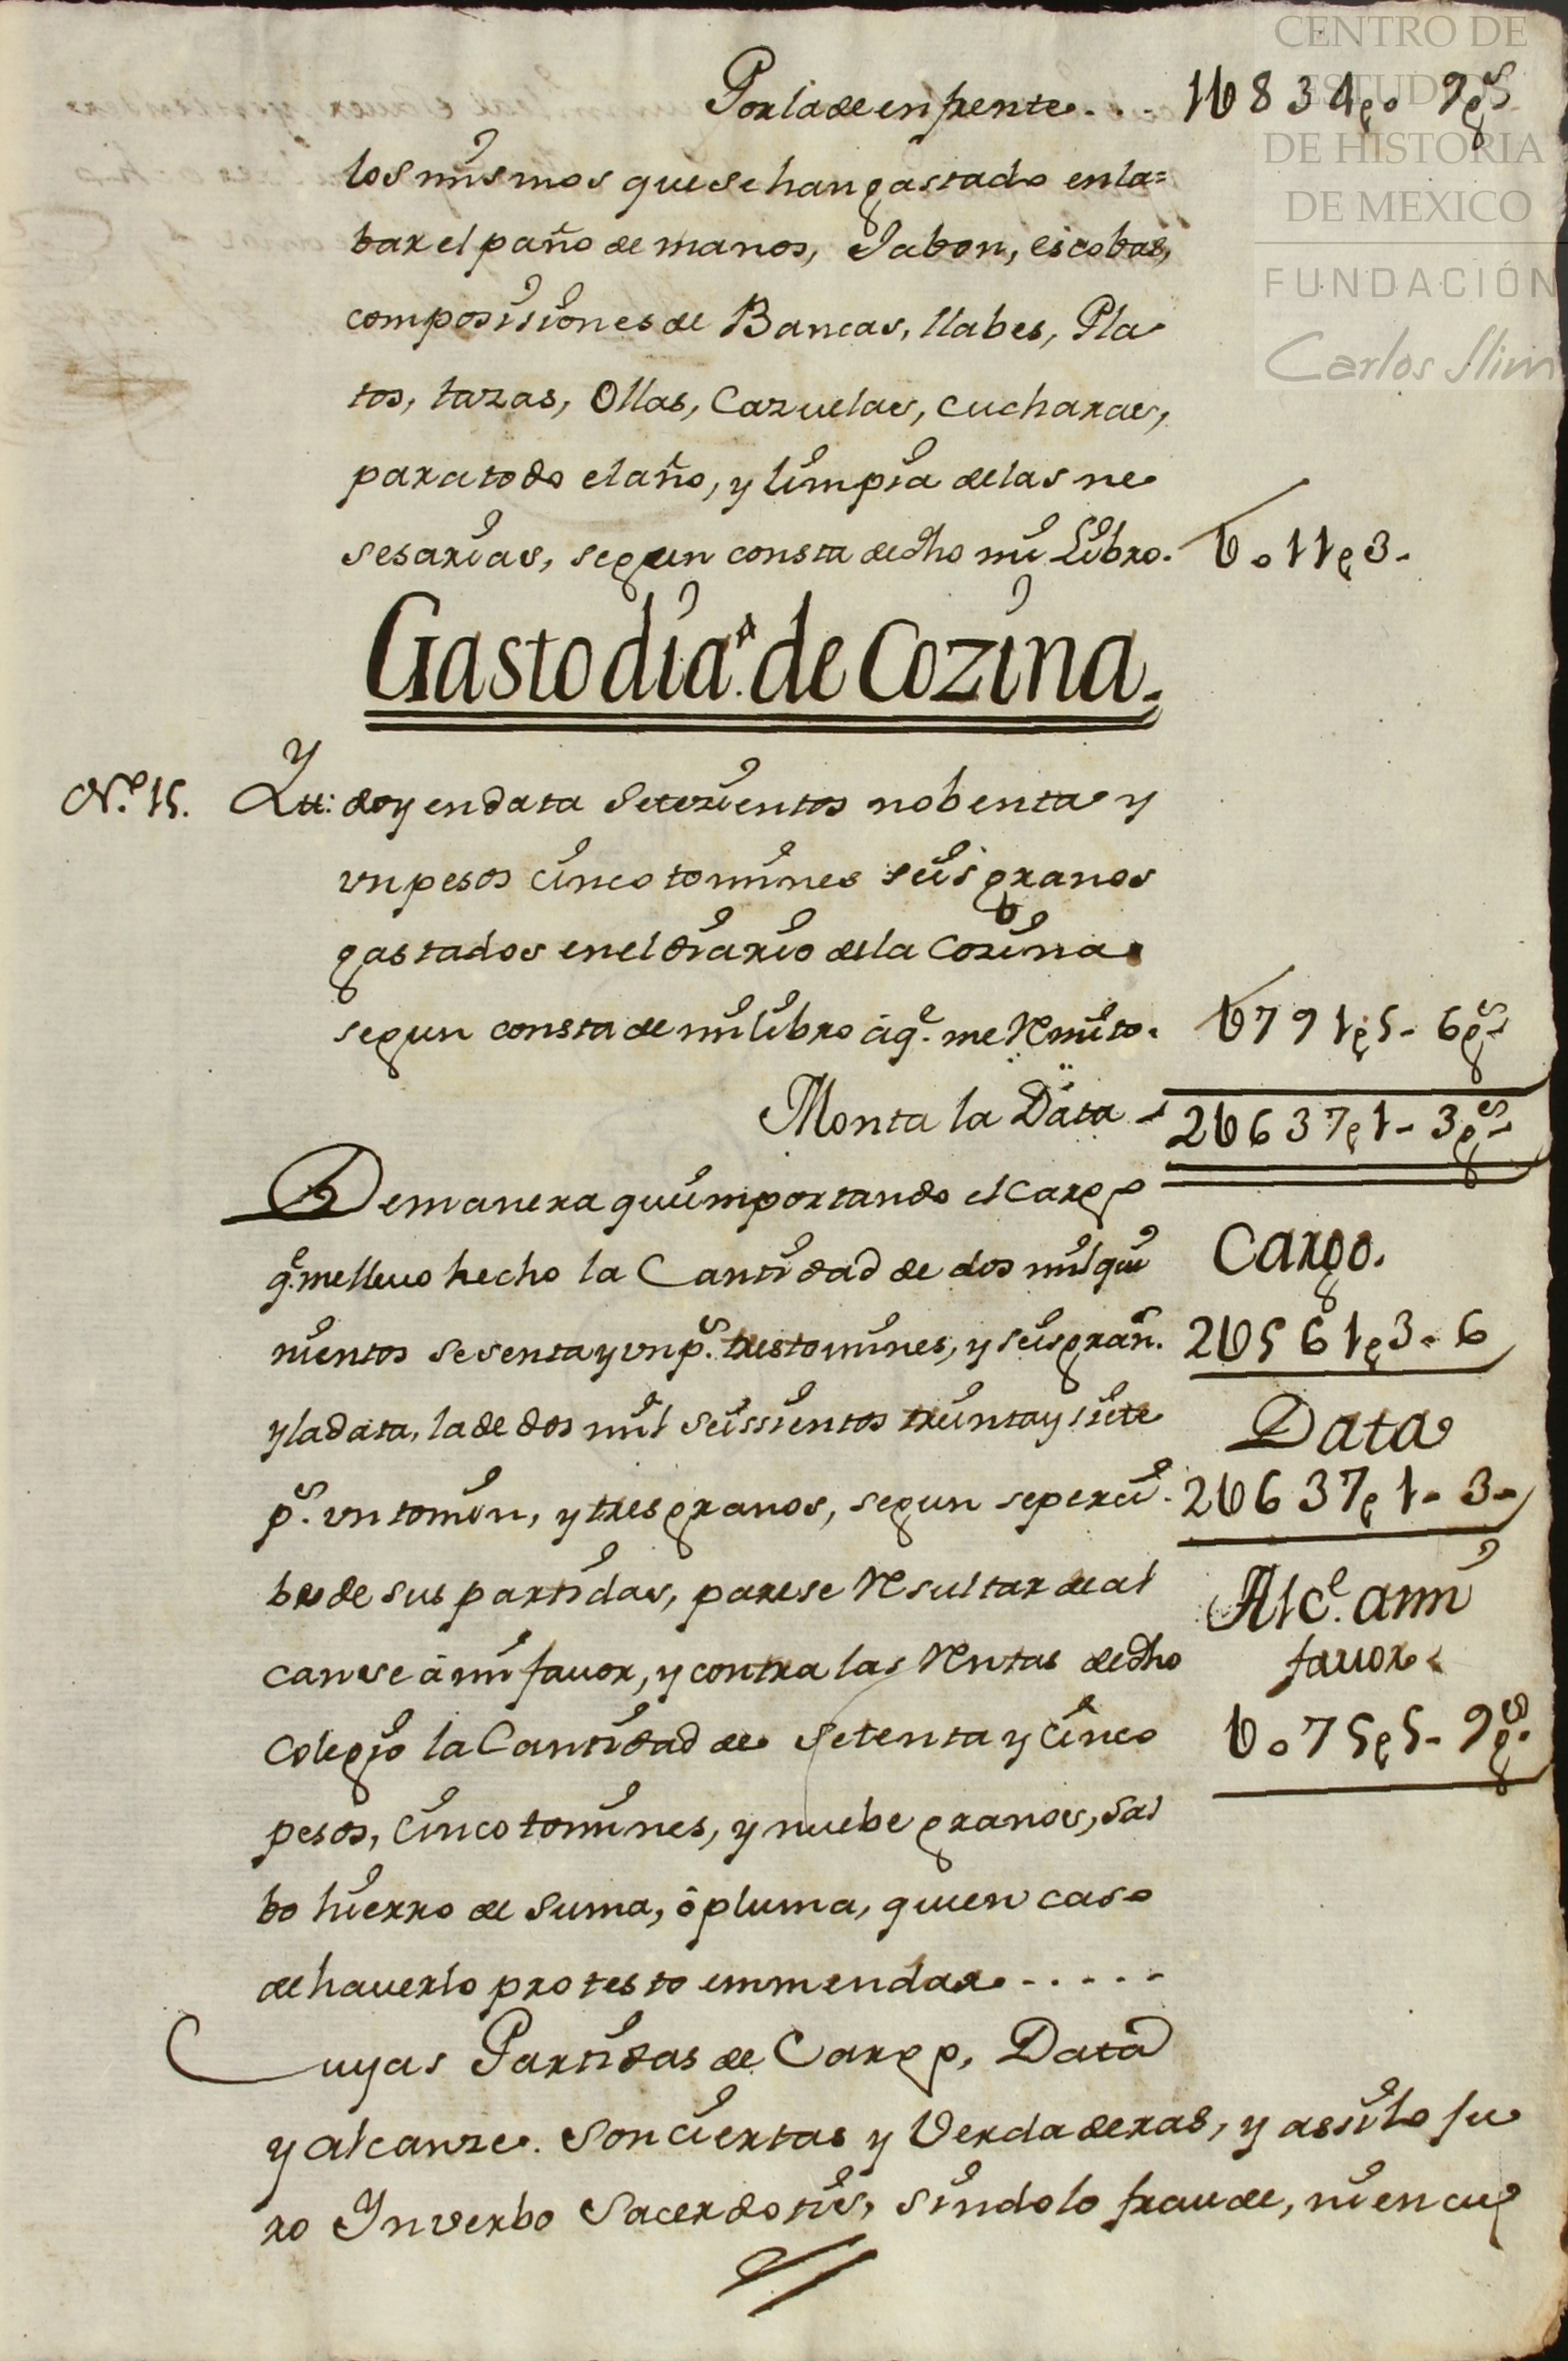 Por la de enfrente... 1U834p0 9gs
los mismos que se han gastado en la=
bar el paño de manos, Jabon, escobas,
composisiones de Bancas, llabes, Pla
tos, tazas, Ollas, Cazuelas, cucharas,
para todo el año, y limpia de las ne
sesarias, segun consta de dho mi Libro. U011p3-
Gasto dia.o de Cozina.
N.o 15. Ytt: doy en data Setezientos nobenta y
un pesos cinco tomines seis granos
gastados en el diario de la Cozina
segun consta de mi libro à q.e me Remito. U791p5-6gs
Monta la Data 2U637p1-3gs
De manera qu importando el Cargo
q.e me lleuo hecho la Cantidad de dos mil qui
nientos sesenta y un p.s tres tomines, y seis gran.s
y la data, la de dos mil seissientos treinta y siete
p.s un tomin, y tres granos, segun se perci
be de sus partidas, parese Resultar de al
canse à mi fauor, y contra las Rentas de dho
Colegio la Cantidad de Setenta y cinco
pesos, Cinco tomines, y nuebe granos, Sal
bo hierro de Suma, ò pluma, qu en caso
de hauerlo protesto emmendar.....
Cargo.
2U561p3-6
Data
2U637p1-3-
Alc.e a mi
fauor
U075p5-9gs.
Cuyas Partidas de Cargo, Data
y alcanze. Son ciertas y Verdaderas, y assi lo ju
ro In verbo Sacerdotis, sin dolo fraude, ni encu
CENTRO DE
ESTUDIOS
DE HISTORIA
DE MEXICO
FUNDACIÓN
Carlos Slim